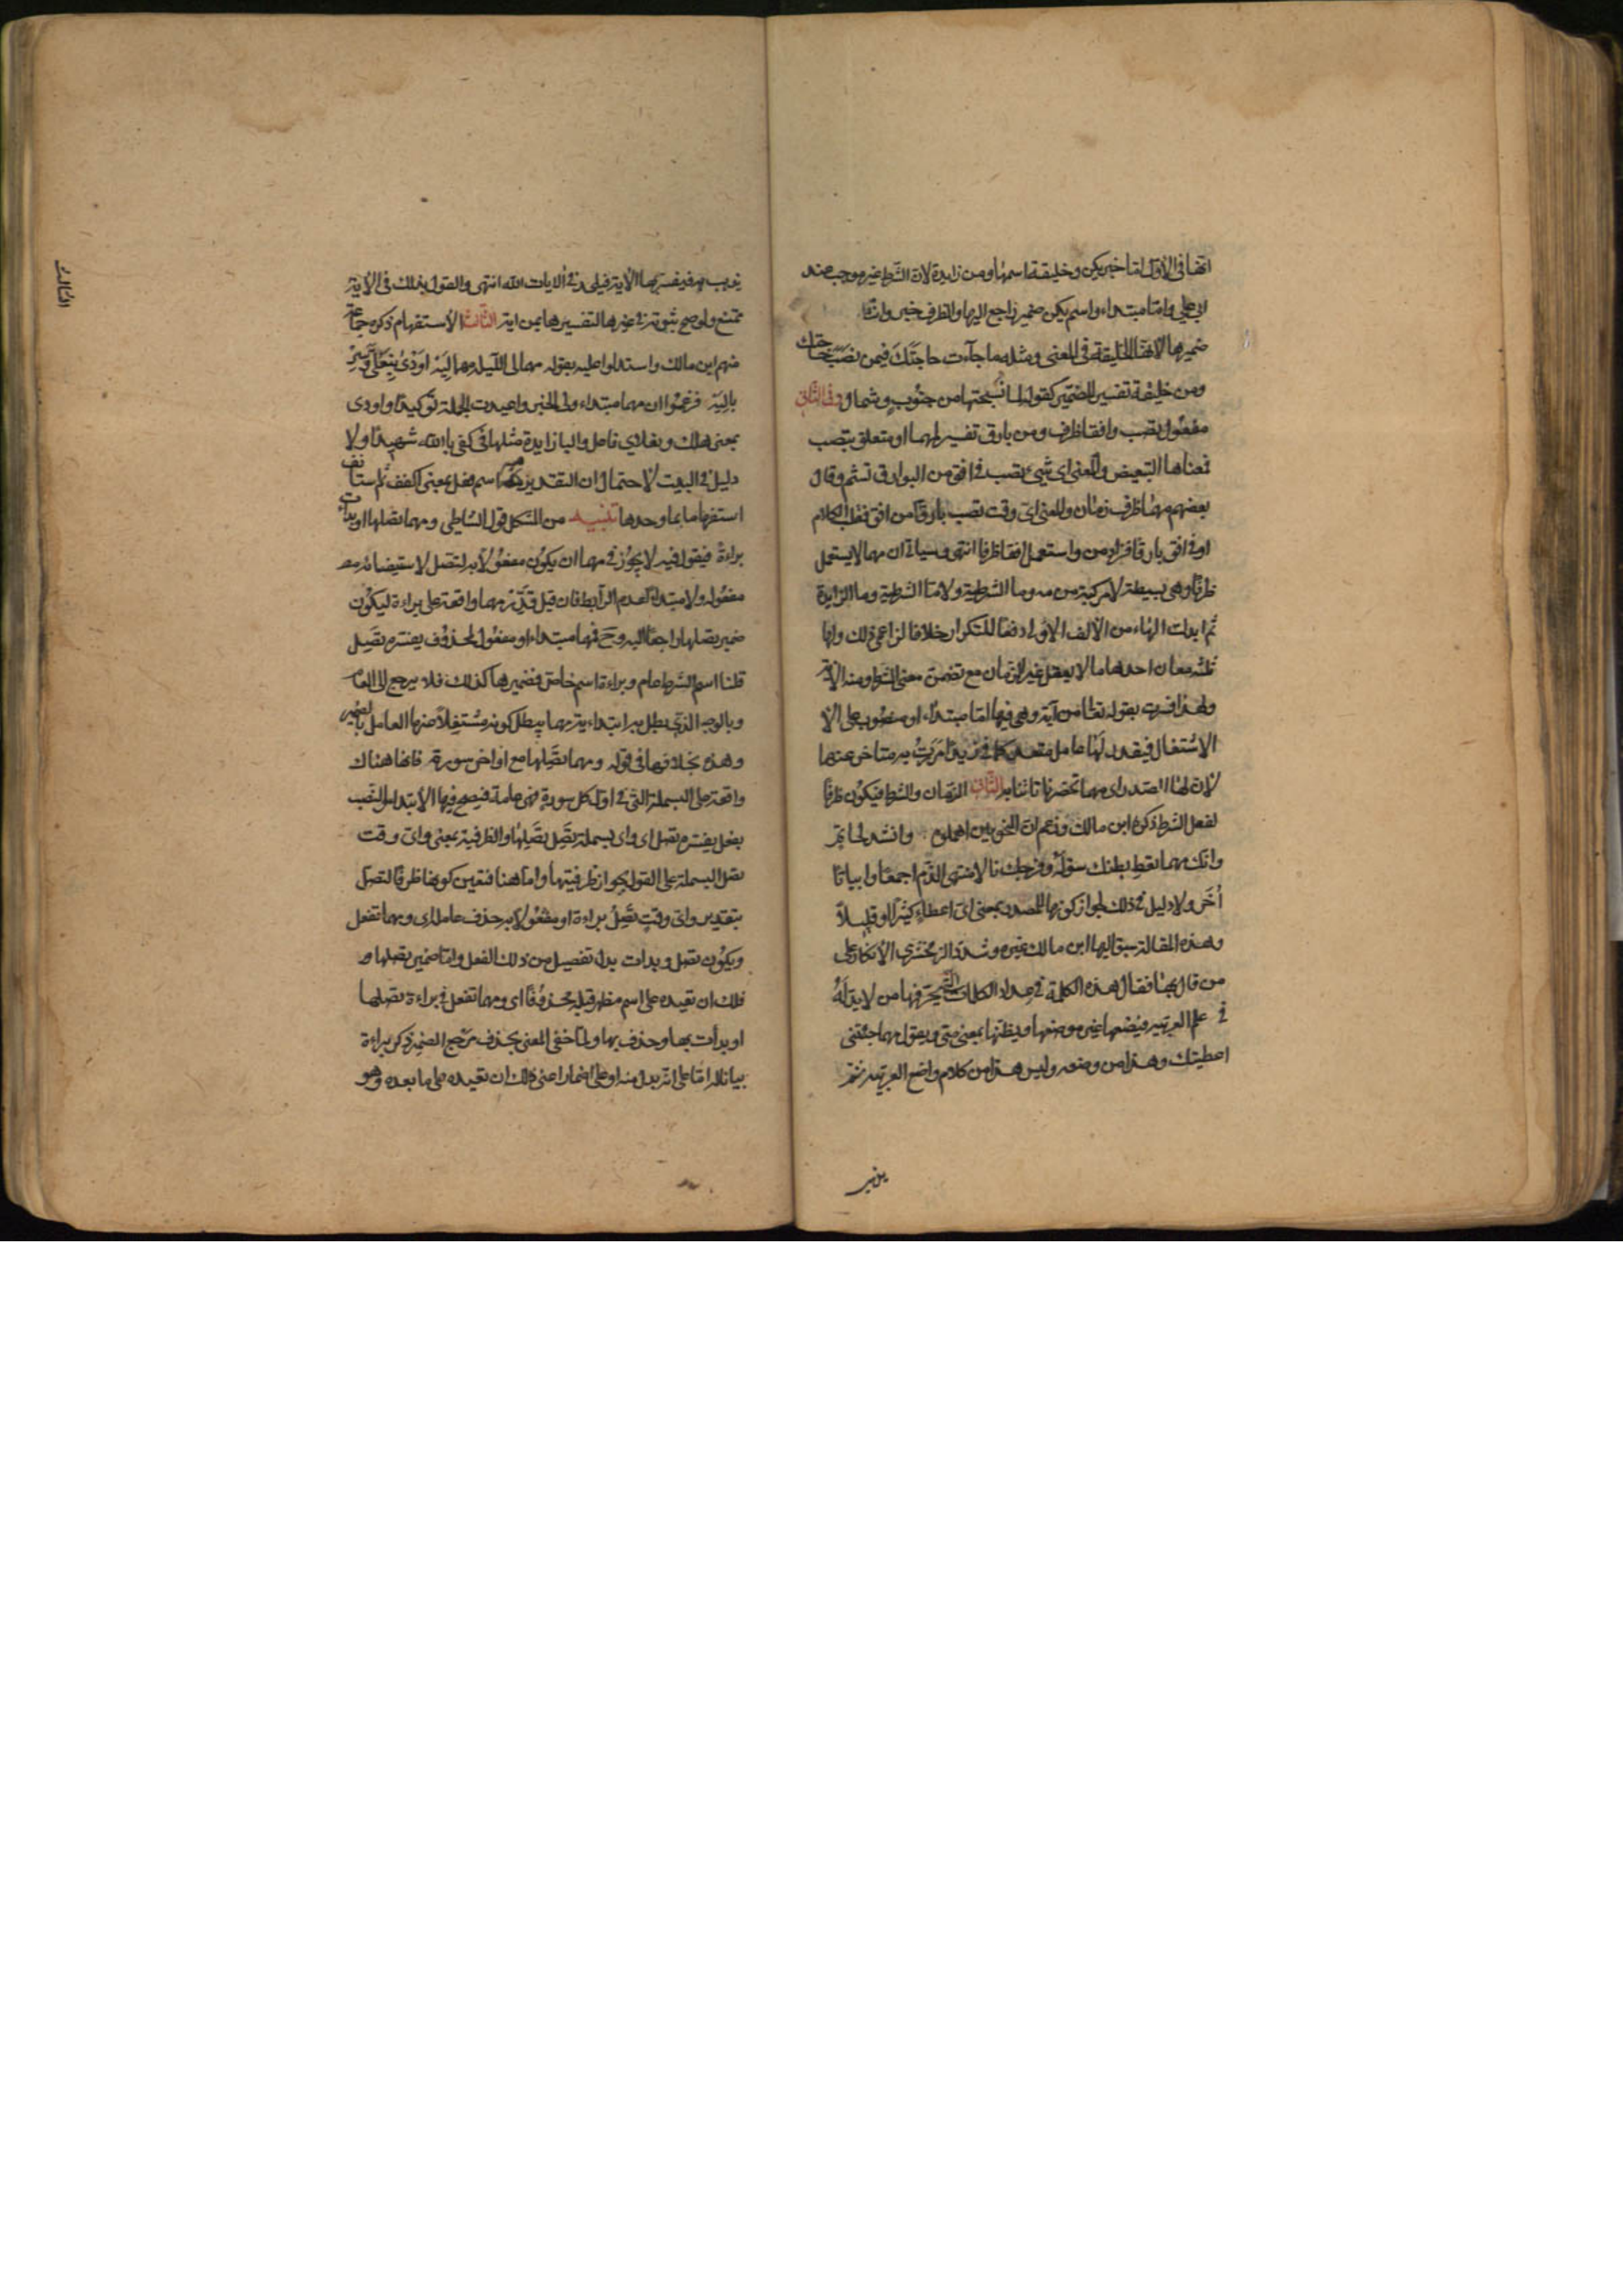 انها فى الاول اما خبر يكن وخليقة اسمها ومن زايدة لان الشرط غير موجب عند
ابى على واما مبتداء واسم يكن ضمير راجع اليها والظرف خبر وانث
ضميرها لانها الخليقة فى المعنى ومثله ما جآءت حاجتَكَ فيمن نصَبَ حاجتك
ومن خليقة تفسير للضمير كقوله لما نسجتها من جنُوبٍ وشمال وفى الثانى
مفعُول تصب وافقا ظرف ومن بارق تفسير لهما او متعلق بتصب
فمعناها التبعيض والمعنى اى شيئ تصب فى افق من البوارق تشم وقال
بعضهم مهما ظرف زمان والمعنى اى وقت تصب بارقًا من افق فقلب الكلام
او فى افق بارقا فزاد من واستعمل افقا ظرفا انتهى وسياتى ان مهما لا يستعمل
ظرفًا وهى بسيطة لا مركبة من مه وما الشرطية ولا ما الشرطية وما الزايدة
ثم ابدلت الهاء من الالف الاولى دفعًا للتكرار خلافا لزاعمى ذلك ولها
ثلثه معان احدها ما لا يعقل غير الزمان مع تضمن معنى الشرط ومنه الآية
ولهذا فسرت بقوله تعالى من آية وهى فيها اما مبتداء او منصوب على الا
الاشتغال فيقدر لها عامل متعد كما فى زيدًا مَرَرتُ به متاخر عنها
لان لها الصدر اى مهما تحضرنا تاتنا به الثانى الزمان والشرط فيكون ظرفًا
لفعل الشرط ذكره ابن مالك وزعم ان النحويين اهملوه وانشد لحاتم
وانك مهما تعط بطنك سؤله وفرجك نالا منتهى الذم اجمعا وابياتًا
اُخَر ولا دليل فى ذلك لجواز كونها للمصدر بمعنى اى اعطاءٍ كثيرًا او قليلاً
وهذه المقالة سبق اليها ابن مالك غيره وشدد الزمخشرى الانكار على
من قال بها فقال هذه الكلمة فى عداد الكلمات التى يحرفها من لا يد لَهُ
فى علم العربيه فيضعها غير موضعها ويظنها بمعنى متى ويقول مهما جئتنى
اعطيتك وهذا من وضعه وليس هذا من كلام واضع العربيه ثم
يذهب فيفسر بها الآية فيلحد فى آلايات الله انتهى والقول بذلك فى الآية
ممتنع ولو صح ثبوته فى غيرها لتفسيرها بمن اية الثالث الاستفهام ذكره جماعة
منهم ابن مالك واستدلوا عليه بقوله مهما لى الليلة مهما لِيَهْ اودَى بنعلَىَّ وسِرْ
بالِيَهْ فزعموا ان مهما مبتداء ولى الخبر واعيدت الجملة توكيدًا واودى
بمعنى هلك وبنعلاى فاعل والبا زايدة مثلها فى كفى بالله شهيدًا ولا
دليل فى البيت لاحتمال ان التقدير مه اسم فعل بمعنى اكفف ثم ستانف
استفهاما بما وحدها تنبيه من المشكل قول الشاطبى ومهما تصلها او بدات
براءةً فيقول فيه لا يجُوز فى مهما ان يكون مفعُولاً به لتصل لاستيفائه
مفعُوله ولا مبتداء لعدم الرابط فان قيل قدّر مهما واقعة على براءة ليكُون
ضمير تصلها راجعًا اليه وح فمهما مبتداء او مفعُول لمحذُوف يفسره تصَل
قلنا اسم الشرط عام وبراءة اسم خاص فضميرها كذلك فلا يرجع الى العام
وبالوجه الذى بطل به ابتدايته مهما يبطل كونه مشتغلاً عنها العامل بالضمير
وهذه بخلافها فى قوله ومهما تصَلِها مع اواخر سورة فانها هناك
واقعة على البسملة التى فى اول كل سورةٍ فهى عامة فيصح فيها الابتداء او النصب
بفعل يفسره تصل اى واى بسملة تصِل تصَلِها والظرفية بمعنى واى وقت
تصل البسملة على القول بجواز ظرفيتها واما هنا فتعين كونها ظرفًا لتصل
بتقدير واى وقتٍ تصِل براءة او مفعُولاً به حذف عامله اى ومهما تفعل
ويكُون تصل وبدات بدل تفصيل من ذلك الفعل واما ضمير تصلها
فلك ان تعيده على اسم مظهر قبله محذوفًا اى ومهما تفعل فى براءة تصلها
او بدأت بها وحذف بها ولما خفى المعنى بحذف مرجع الضمير ذكر براءة
بيانا له اما على انه بدل منه او على اضمار اعنى ولك ان تعيده على ما بعده وهو
الثالث